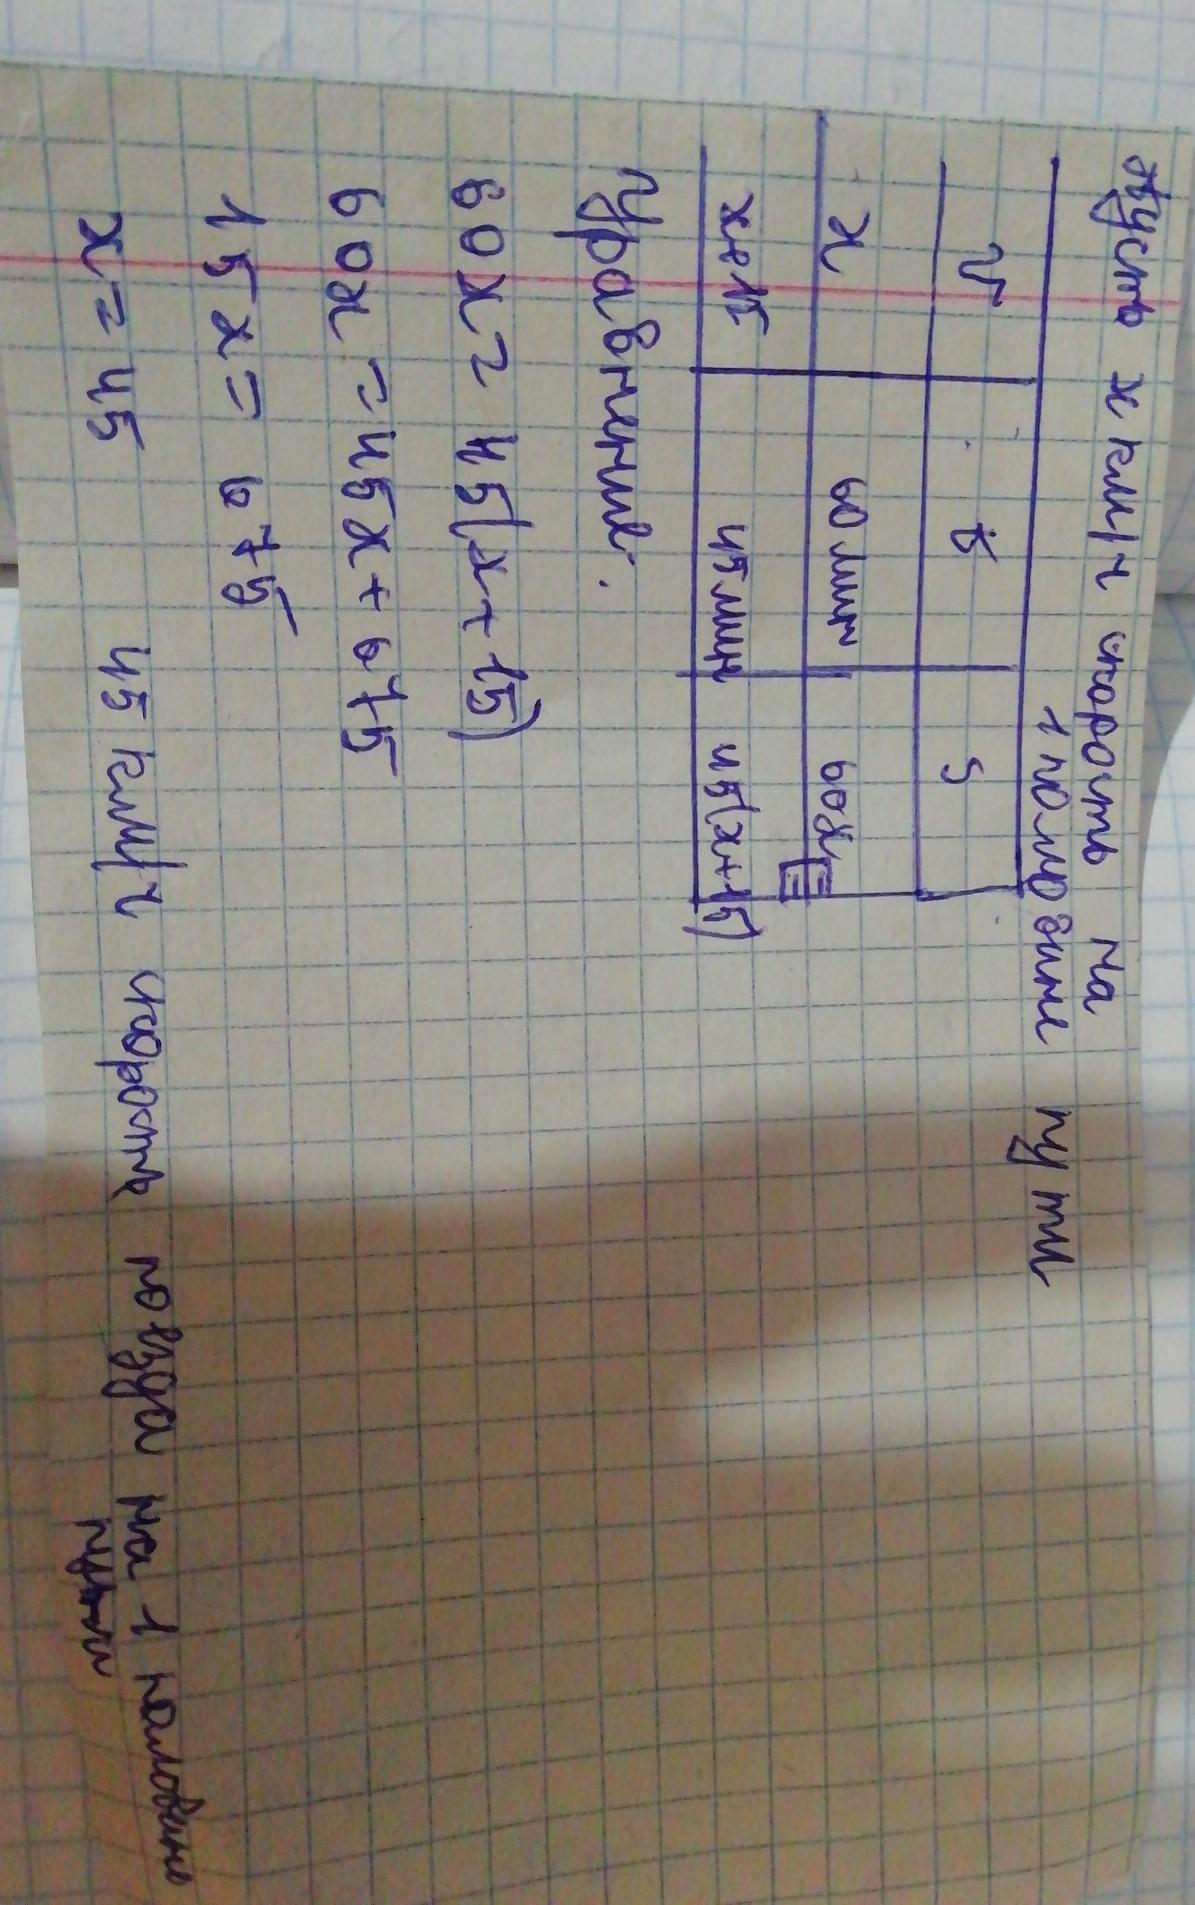 Пусть x км/ч скорость на
1 половине пути
v t s
x 60 мин 60x
x+15 45 мин 45(x+15)
Уравнение.
60x = 45(x+15)
60x = 45x + 675
15x = 675
x = 45 45 км/ч скорость поезда на 1 половине
пути